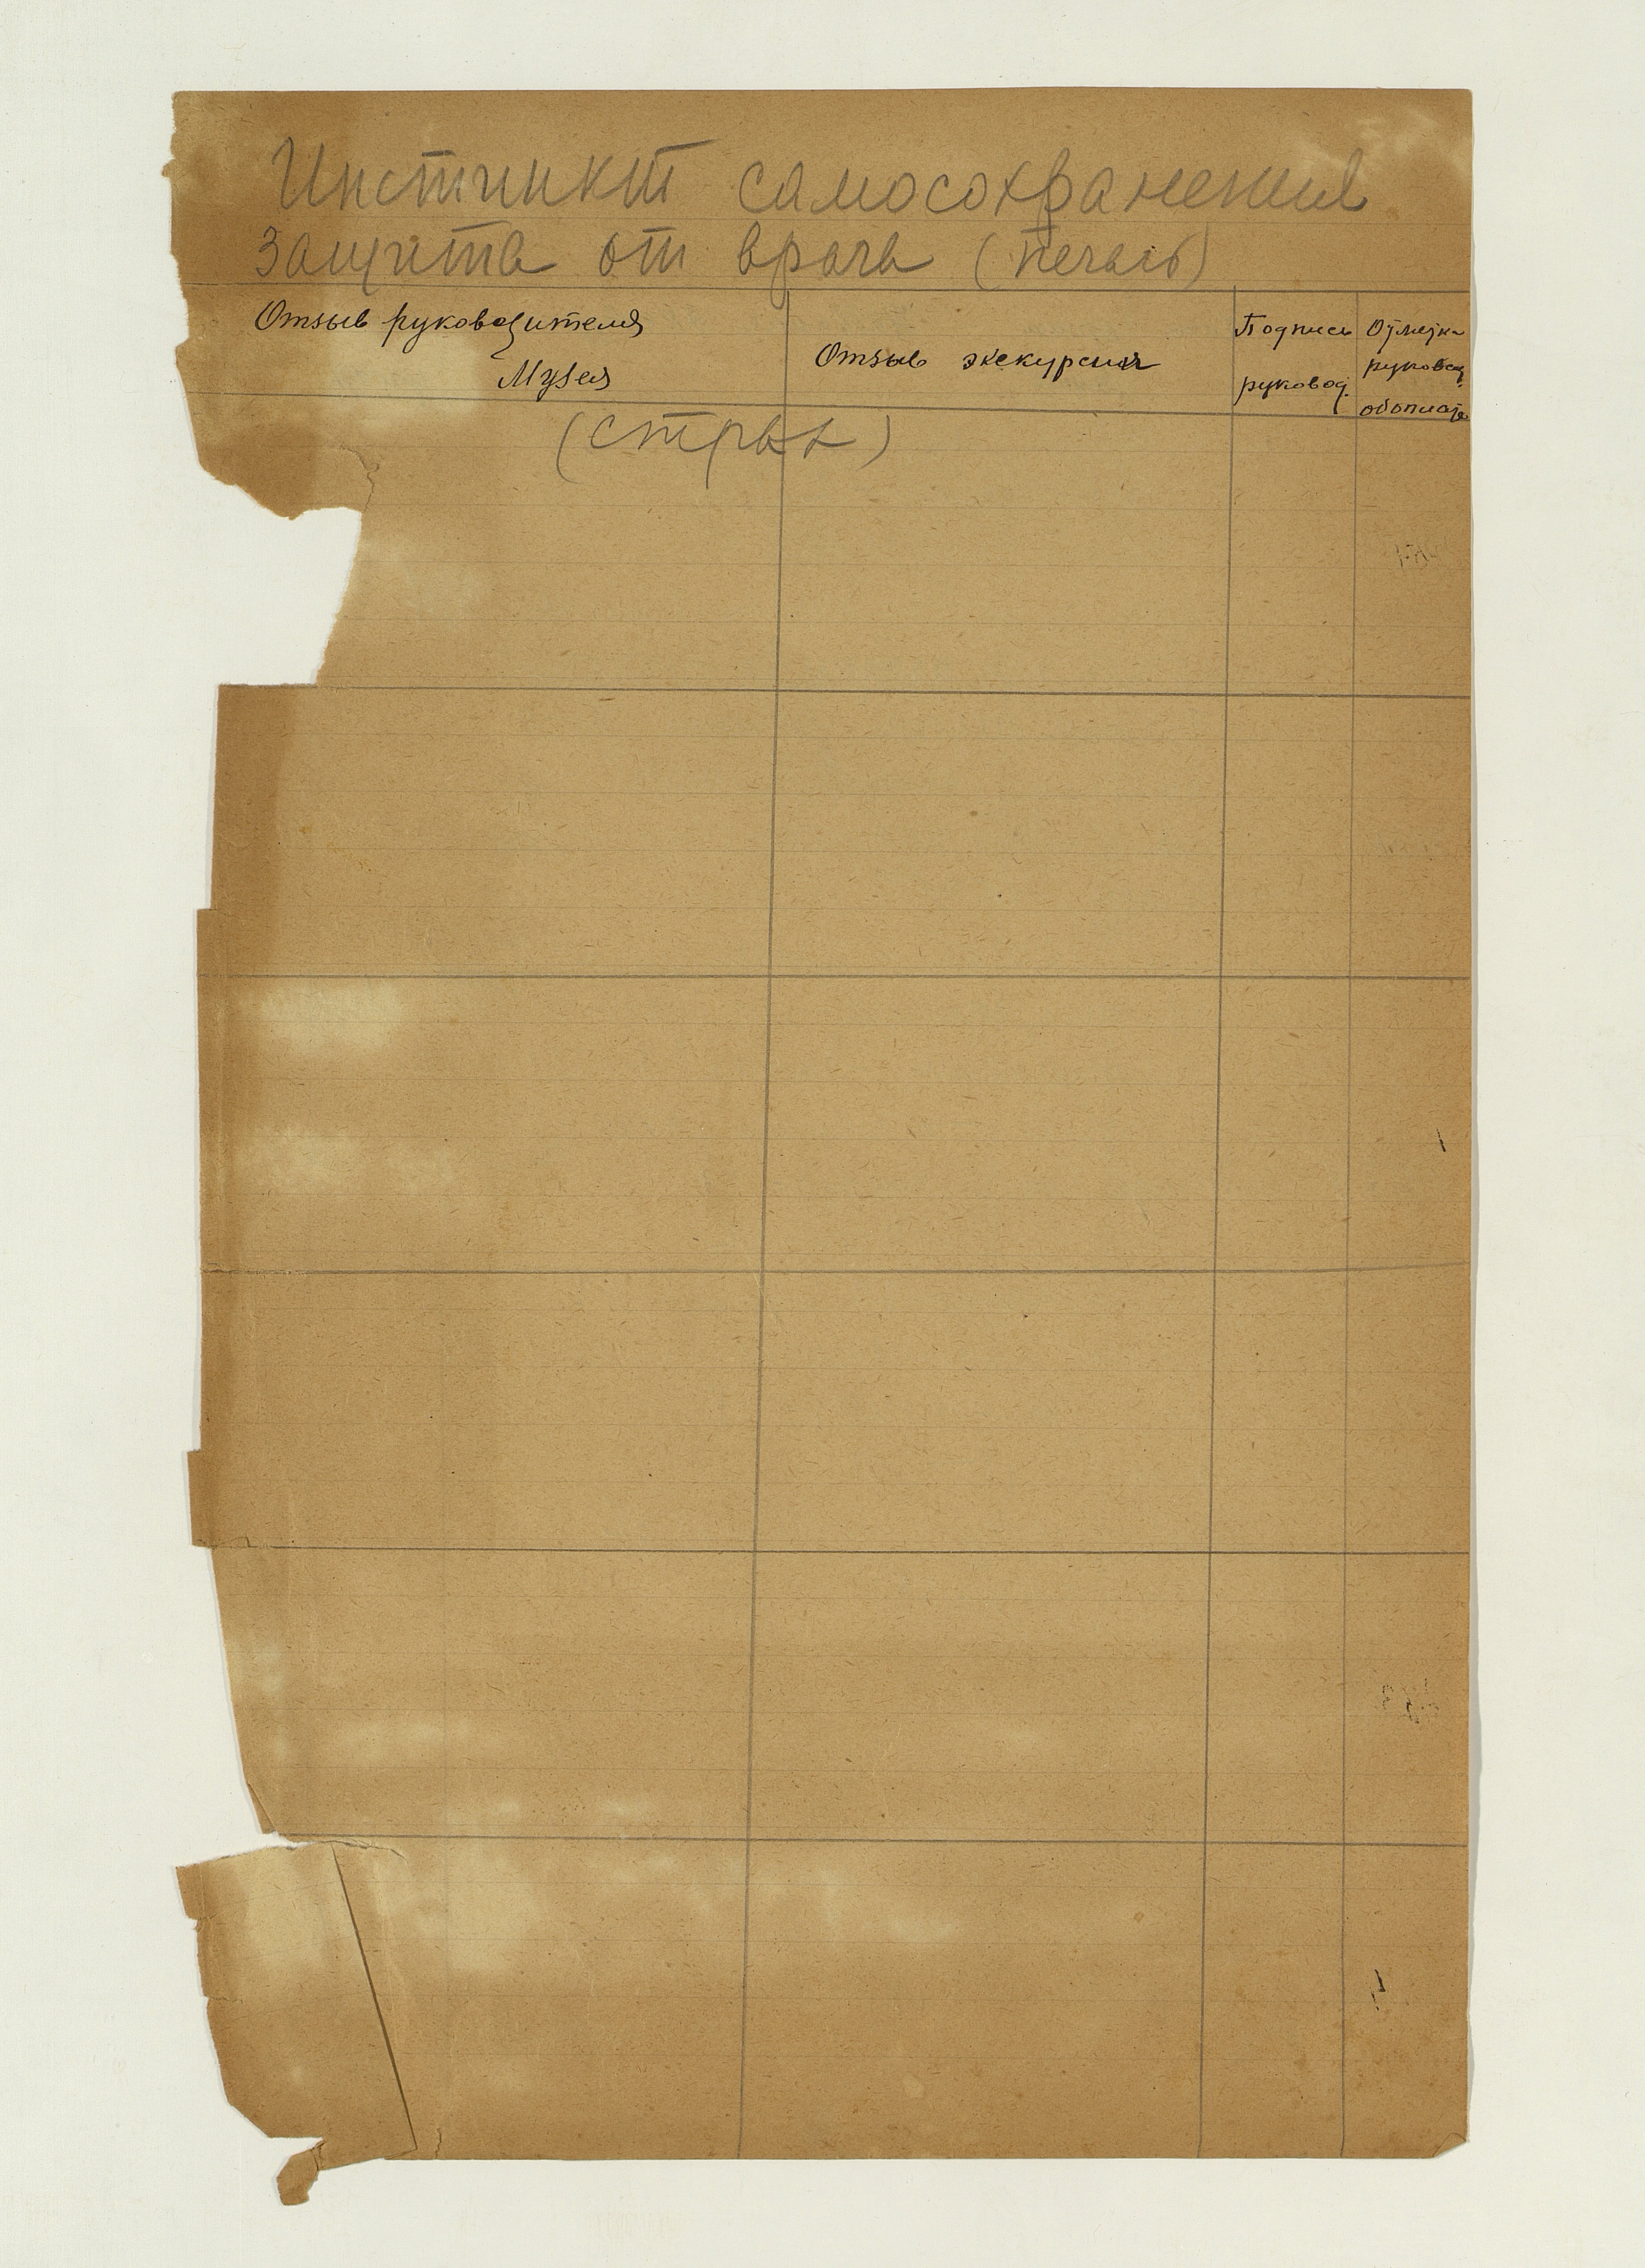 Инстинкт самосохранения
защита от врага (печать)
Отзыв руководителя
Музея
Отзыв экскурсии
Подпись
руковод.
Отметка
руковод.
об оплате
(страх)